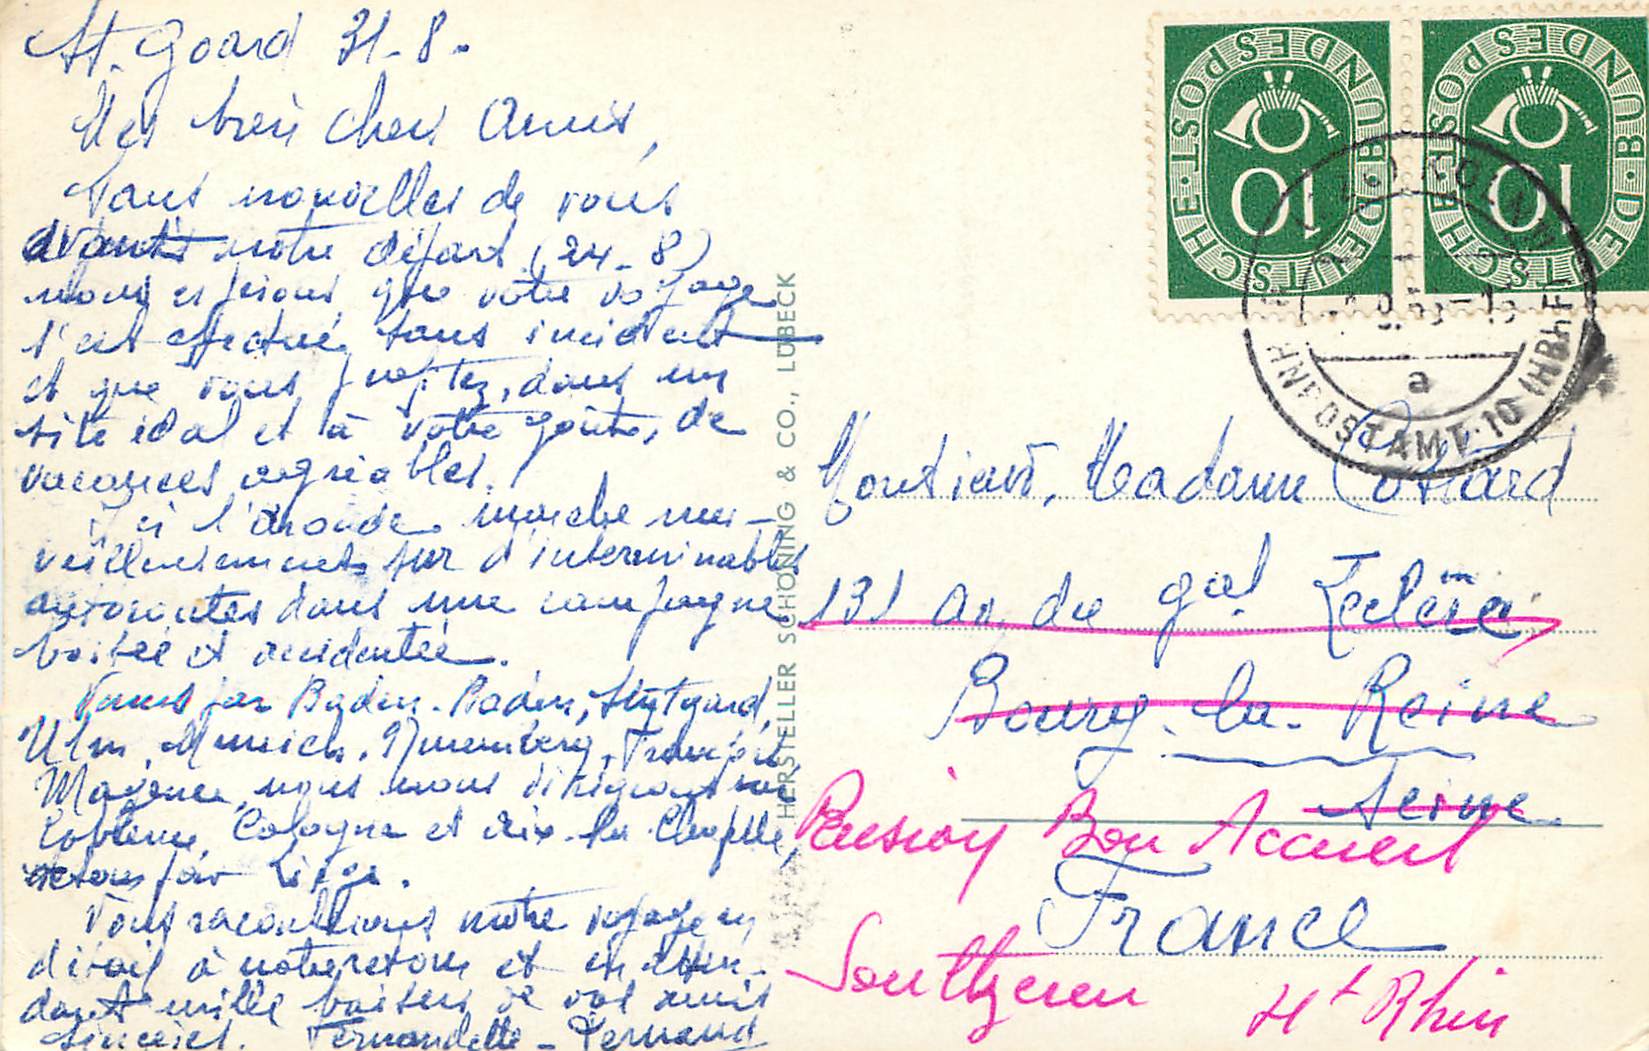 St. Goard 31-8-
Mes bien chers Amis,
Sans nouvelles de vous
avant notre départ (24-8)
nous espérons que votre voyage
s'est effectué sans incident
et que vous profitez, dans un
site idéal et à votre goût, de
vacances agréables.
Ici l'Aronde marche mer-
veilleusement sur d'interminables
autoroutes dans une campagne
boisée et accidentée.
Venus par Baden-Baden, Stutgard,
Ulm, Munich, Nuremberg, Francfort,
Mayence, nous nous dirigeons sur
Coblence, Cologne et Aix-la-Chapelle,
retour par Liège.
Vous raconterons notre voyage en
détail à notre retour et en atten-
dant mille baisers de vos amis
sincères. Fernandette - Fernand
HERSTELLER SCHÖNING & CO., LÜBECK
DEUTSCHE BUNDESPOST
10
DEUTSCHE BUNDESPOST
10
KÖLN
BAHNPOSTAMT 10 (HBHF)
a
Monsieur, Madame Cottard
131 av. du Gal Leclerc
Bourg-la-Reine
Seine
France
Pension Bon Accueil
Soultzeren
Ht Rhin